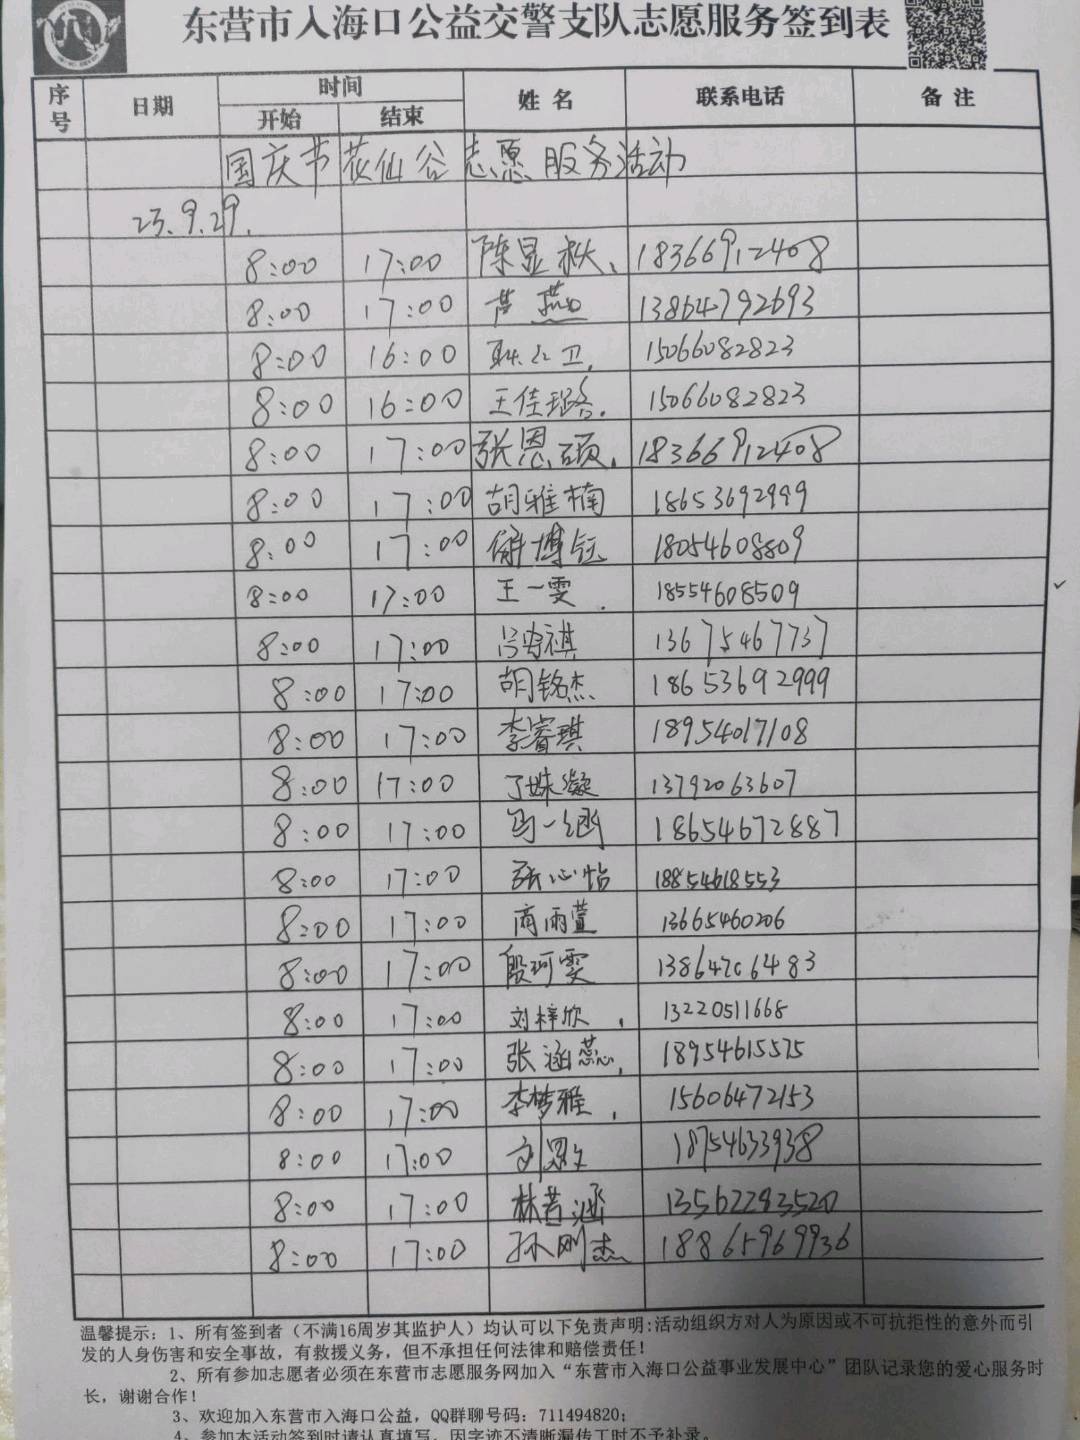 东营市入海口公益交警支队志愿服务签到表
序号 日期 时间 姓名 联系电话 备注
开始 结束
国庆节花仙谷志愿服务活动
23.9.29.
8:00 17:00 陈显秋、 18366912408
8:00 17:00 芦燕 13864792693
8:00 16:00 卫. 15066082823
8:00 16:00 王佳璐. 15066082823
8:00 17:00 张恩硕. 18366912408
8:00 17:00 胡雅楠 18653692999
8:00 17:00 解博钰 18054608809
8:00 17:00 王一雯. 18554608509
8:00 17:00 祺 13675467737
8:00 17:00 胡铭杰 18653692999
8:00 17:00 李睿琪 18954017108
8:00 17:00 丁姝凝 13792063607
8:00 17:00 马一涵 18654672887
8:00 17:00 张心怡 18854618553
8:00 17:00 商雨萱 13665460206
8:00 17:00 殷珂雯 13864706483
8:00 17:00 刘梓欣, 13220511668
8:00 17:00 张涵蕊, 18954615575
8:00 17:00 李梦雅, 15606472153
8:00 17:00 18754633938
8:00 17:00 林若涵 13562283520
8:00 17:00 孙刚杰 18865969936
温馨提示：1、所有签到者（不满16周岁其监护人）均认可以下免责声明：活动组织方对人为原因或不可抗拒性的意外而引
发的人身伤害和安全事故，有救援义务，但不承担任何法律和赔偿责任！
2、所有参加志愿者必须在东营市志愿服务网加入“东营市入海口公益事业发展中心”团队记录您的爱心服务时
长，谢谢合作！
3、欢迎加入东营市入海口公益，QQ群聊号码：711494820；
4、参加本活动签到时请认真填写，因字迹不清晰漏传工时不予补录。